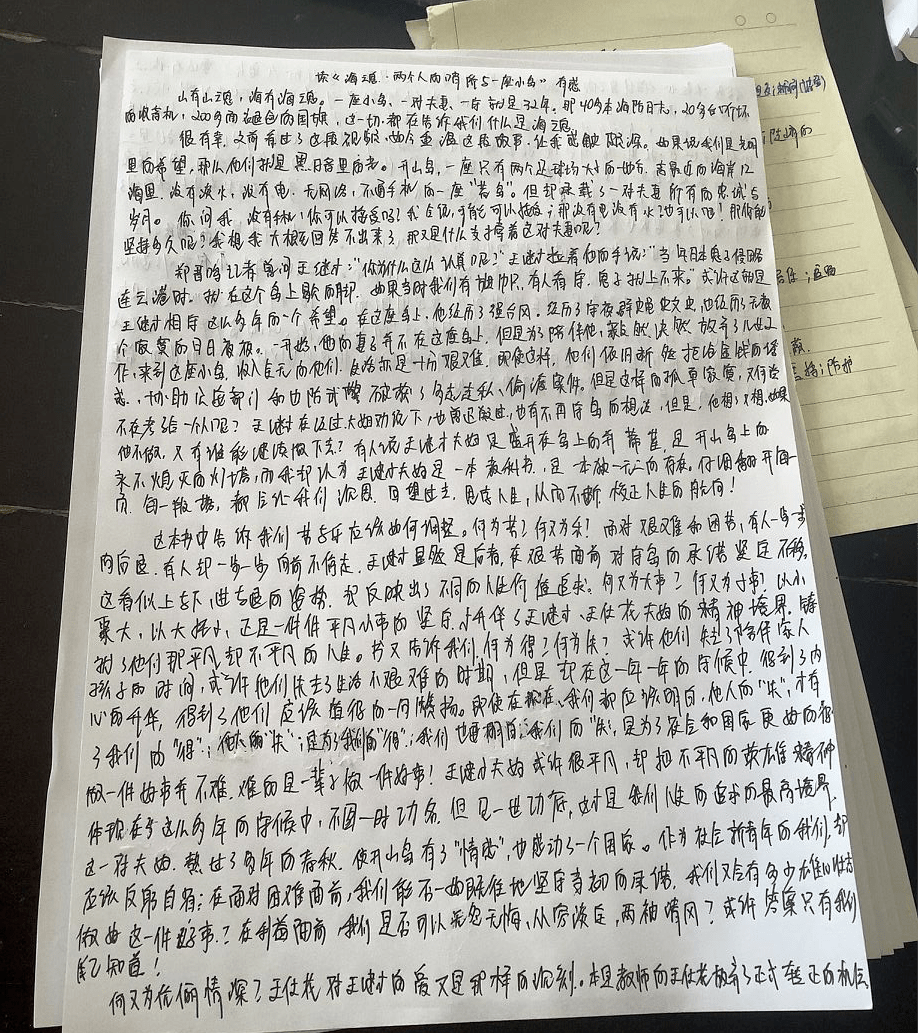 读《海魂·两个人的哨所与一座小岛》有感
山有山魂，海有海魂。一座小岛、一对夫妻、一守就是32年。那40多本海防日志，20多台听坏
的收音机，200多面褪色的国旗，这一切都在告诉我们什么是海魂。
很有幸，之前看过了这段视频，如今重温这段故事，让我感触颇深。如果说我们是光明
里的希望，那么他们就是黑暗里的光。开山岛，一座只有两个足球场大小的地方，离最近的海岸12
海里，没有淡水，没有电，无网络，不通手机的一座"苦岛"。但却承载了一对夫妻所有的忠诚与
岁月。你问我，没有手机，你可以接受吗？我会说，可能可以接受；那没有电没有水？也可以吧！那你能
坚持多久呢？我想我大概回答不出来了，那又是什么支撑着这对夫妻呢？
记者曾问王继才："你为什么这么认真呢？"王继才拉着他的手说："当年日本鬼子侵略
连云港时，就在这个岛上歇的脚，如果当时我们有放哨，有人看守，鬼子就上不来。"或许这就是
王继才相守这么多年的一个希望。在这座岛上，他经历了强台风，经历了
个寂寞的日日夜夜。一开始，他的妻子并不在这座岛上，但是为了陪伴他，毅然决然放弃了
作，来到这座小岛，收入甚元的他们，生活却是十分艰难，即使这样，他们依旧断然拒绝金钱的诱
惑，协助公安部门和边防武警破获了多起走私、偷渡案件。但是这样的孤单寂寞，又何尝
不在考验一个人呢？王继才在经过大姐劝说下，也曾退缩过，也有不再守岛的想法，但是，他想了又想，如果
他不做，又有谁能继续做下去？有人说王继才夫妇是盛开在岛上的并蒂莲，是开山岛上的
永不熄灭的灯塔，而我却认为王继才夫妇是一本教科书，是一本独一无二的有声，仔细翻开每一
页，每一段话，都会让我们沉思，回望过去，思考人生，从而不断校正人生的航向！
这本书中告诉我们苦与乐应该如何调整。何为苦？何又为乐！面对艰难和困苦，有人一步步
向后退，有人却一步一步向前不停走，王继才显然是后者，在艰苦面前对守岛的承诺坚定不移。
这看似上去不进也退的姿势，却反映出了不同的人生价值追求。何又为大事？何又为小事！以小
聚大，以大括小，正是一件件平凡小事的坚守，才升华了王继才、王仕花夫妇的精神境界，铸
就了他们那平凡却不平凡的人生。书又告诉我们，何为得？何为失？或许他们失去了陪伴家人
孩子的时间，或许他们失去了生活不艰难的时期，但是却在这一年一年的守候中，得到了内
心的升华，得到了他们应该值得的一切赞扬。即使在现在，我们都应该明白，他人的"失"，才有
了我们的"得"；他人的"失"，是为了我们的"得"；我们也要明白，我们的"失"，是为了社会和国家更好的得
做一件好事并不难，难的是一辈子做一件好事！王继才夫妇或许很平凡，却把不平凡的英雄精神
体现在了这么多年的守候中，不图一时功名，但见一世功底，这才是我们人生的追求的最高境界。
这一对夫妇，熬过了多年的春秋，使开山岛有了"情感"，也感动了一个国家。作为社会新青年的我们，却
应该反躬自省：在面对困难面前，我们能否一如既往地坚守当初的承诺，我们又会有多少
做好这一件好事？在利益面前，我们是否可以无怨无悔，从容淡定，两袖清风？或许答案只有我们
自己知道！
何又为伉俪情深？王仕花对王继才的爱又是那样的深刻。本是教师的王仕花放弃了正式转正的机会